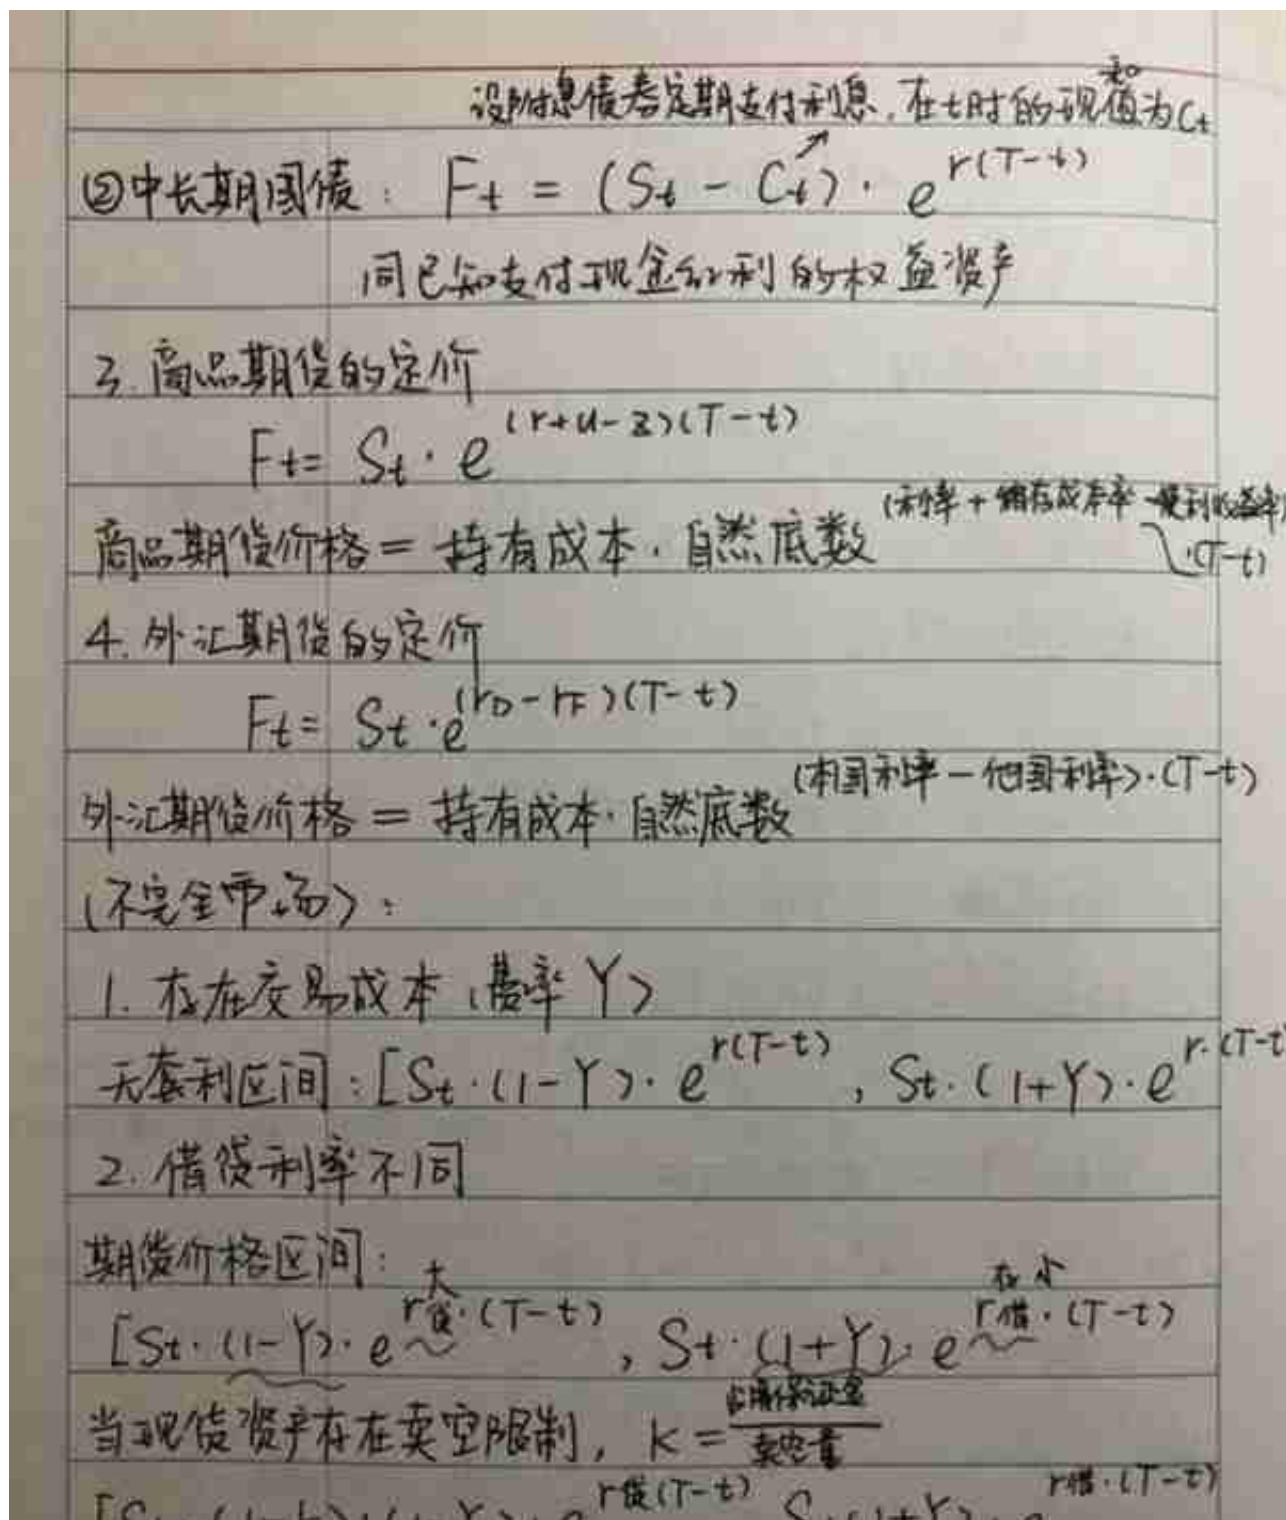 设附息债券定期支付利息,在t时的现值和为Ct
②中长期国债: Ft = (St - Ct)· e^r(T-t)
同已知支付现金红利的权益资产
3. 商品期货的定价
Ft= St· e^(r+u-z)(T-t)
商品期货价格 = 持有成本·自然底数^(利率+储存成本率-便利收益率)·(T-t)
4. 外汇期货的定价
Ft= St·e^(rD-rF)(T-t)
外汇期货价格 = 持有成本·自然底数^(本国利率-他国利率)·(T-t)
(不完全市场):
1. 存在交易成本(费率Y)
无套利区间:[St·(1-Y)· e^r(T-t), St·(1+Y)·e^r·(T-t
2. 借贷利率不同
期货价格区间:
[St·(1-Y)·e^r贷·(T-t), St·(1+Y)·e^r借·(T-t)
当现货资产存在卖空限制, K=占用保证金/卖空量
r贷(T-t) r借·(T-t)